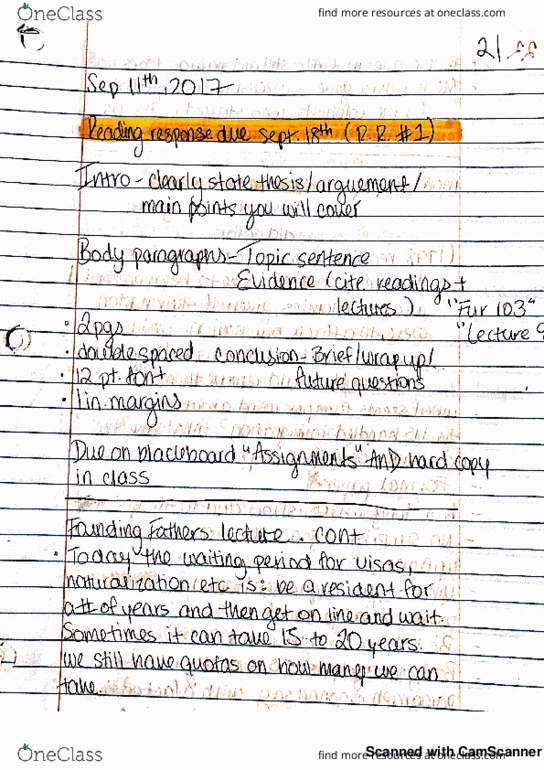 OneClass
find more resources at oneclass.com
Sep 11th, 2017
Reading response due Sept. 18th (R.R. #1)
Intro - clearly state thesis/arguement/
main points you will cover
Body paragraphs - Topic sentence
Evidence (cite readings +
lectures) "Fur 103"
"Lecture 9
• 2pgs
• double spaced conclusion - Brief/wrap up/
• 12 pt. font future questions
• 1 in. margins
Due on blackboard "Assignments" AND hard copy
in class
Founding Fathers lecture. cont
• Today the waiting period for visas,
naturalization etc is: be a resident for
a # of years and then get on line and wait.
Sometimes it can take 15 to 20 years.
we still have quotas on how many we can
take.
OneClass
find more resources at oneclass.com
Scanned with CamScanner